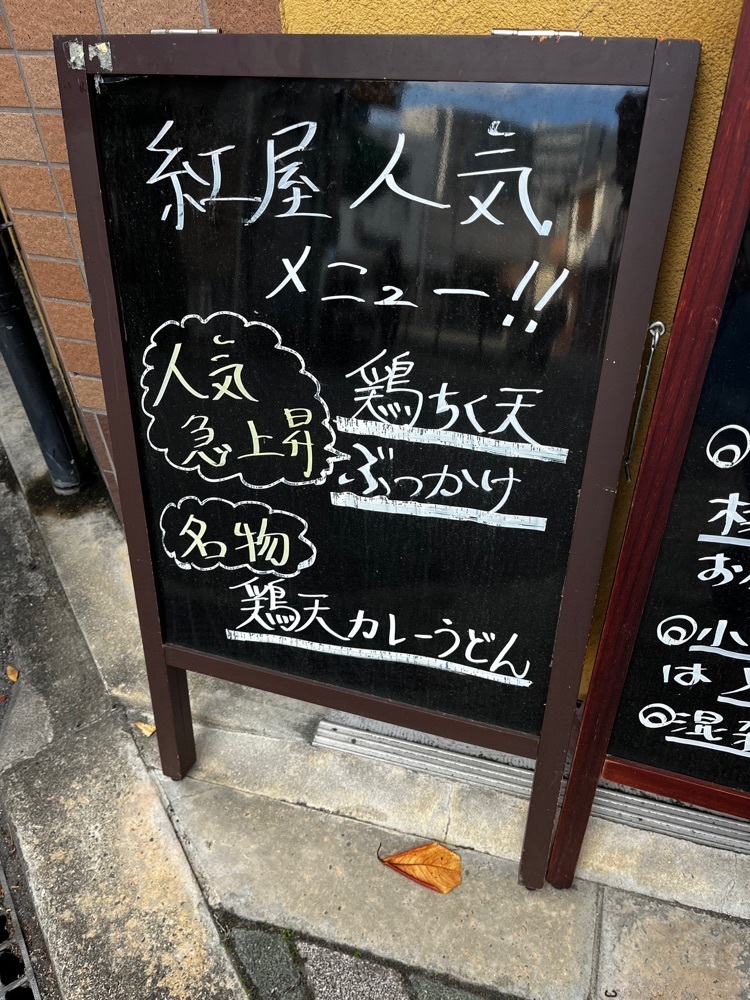 紅屋人気
メニュー!!
人気
急上昇
鶏ちく天
ぶっかけ
名物
鶏天カレーうどん
お
小
は
混